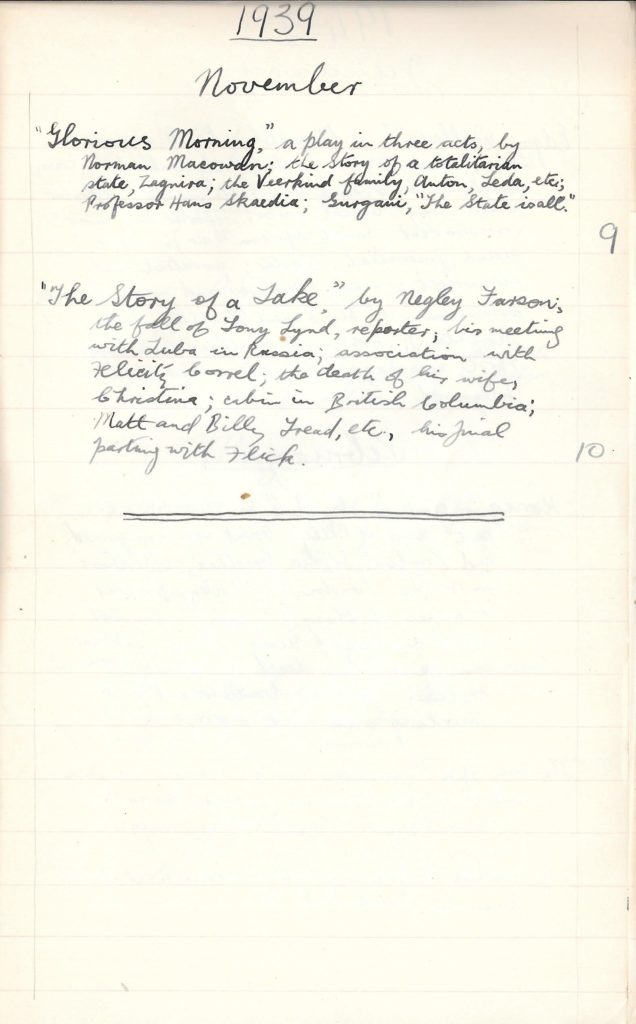 1939
November
"Glorious Morning," a play in three acts, by
Norman Macowan; the Story of a totalitarian
state, Zagnira; the Veerkind family, Anton, Leda, etc;
Professor Hans Skaedia; Gurgani, "The State is all."
9
"The Story of a Lake," by Negley Farson;
the fall of Tony Lynd, reporter; his meeting
with Luba in Russia; association with
Felicity Correl; the death of his wife,
Christina; cabin in British Columbia;
Matt and Billy Tread, etc., his final
parting with Flick.
10